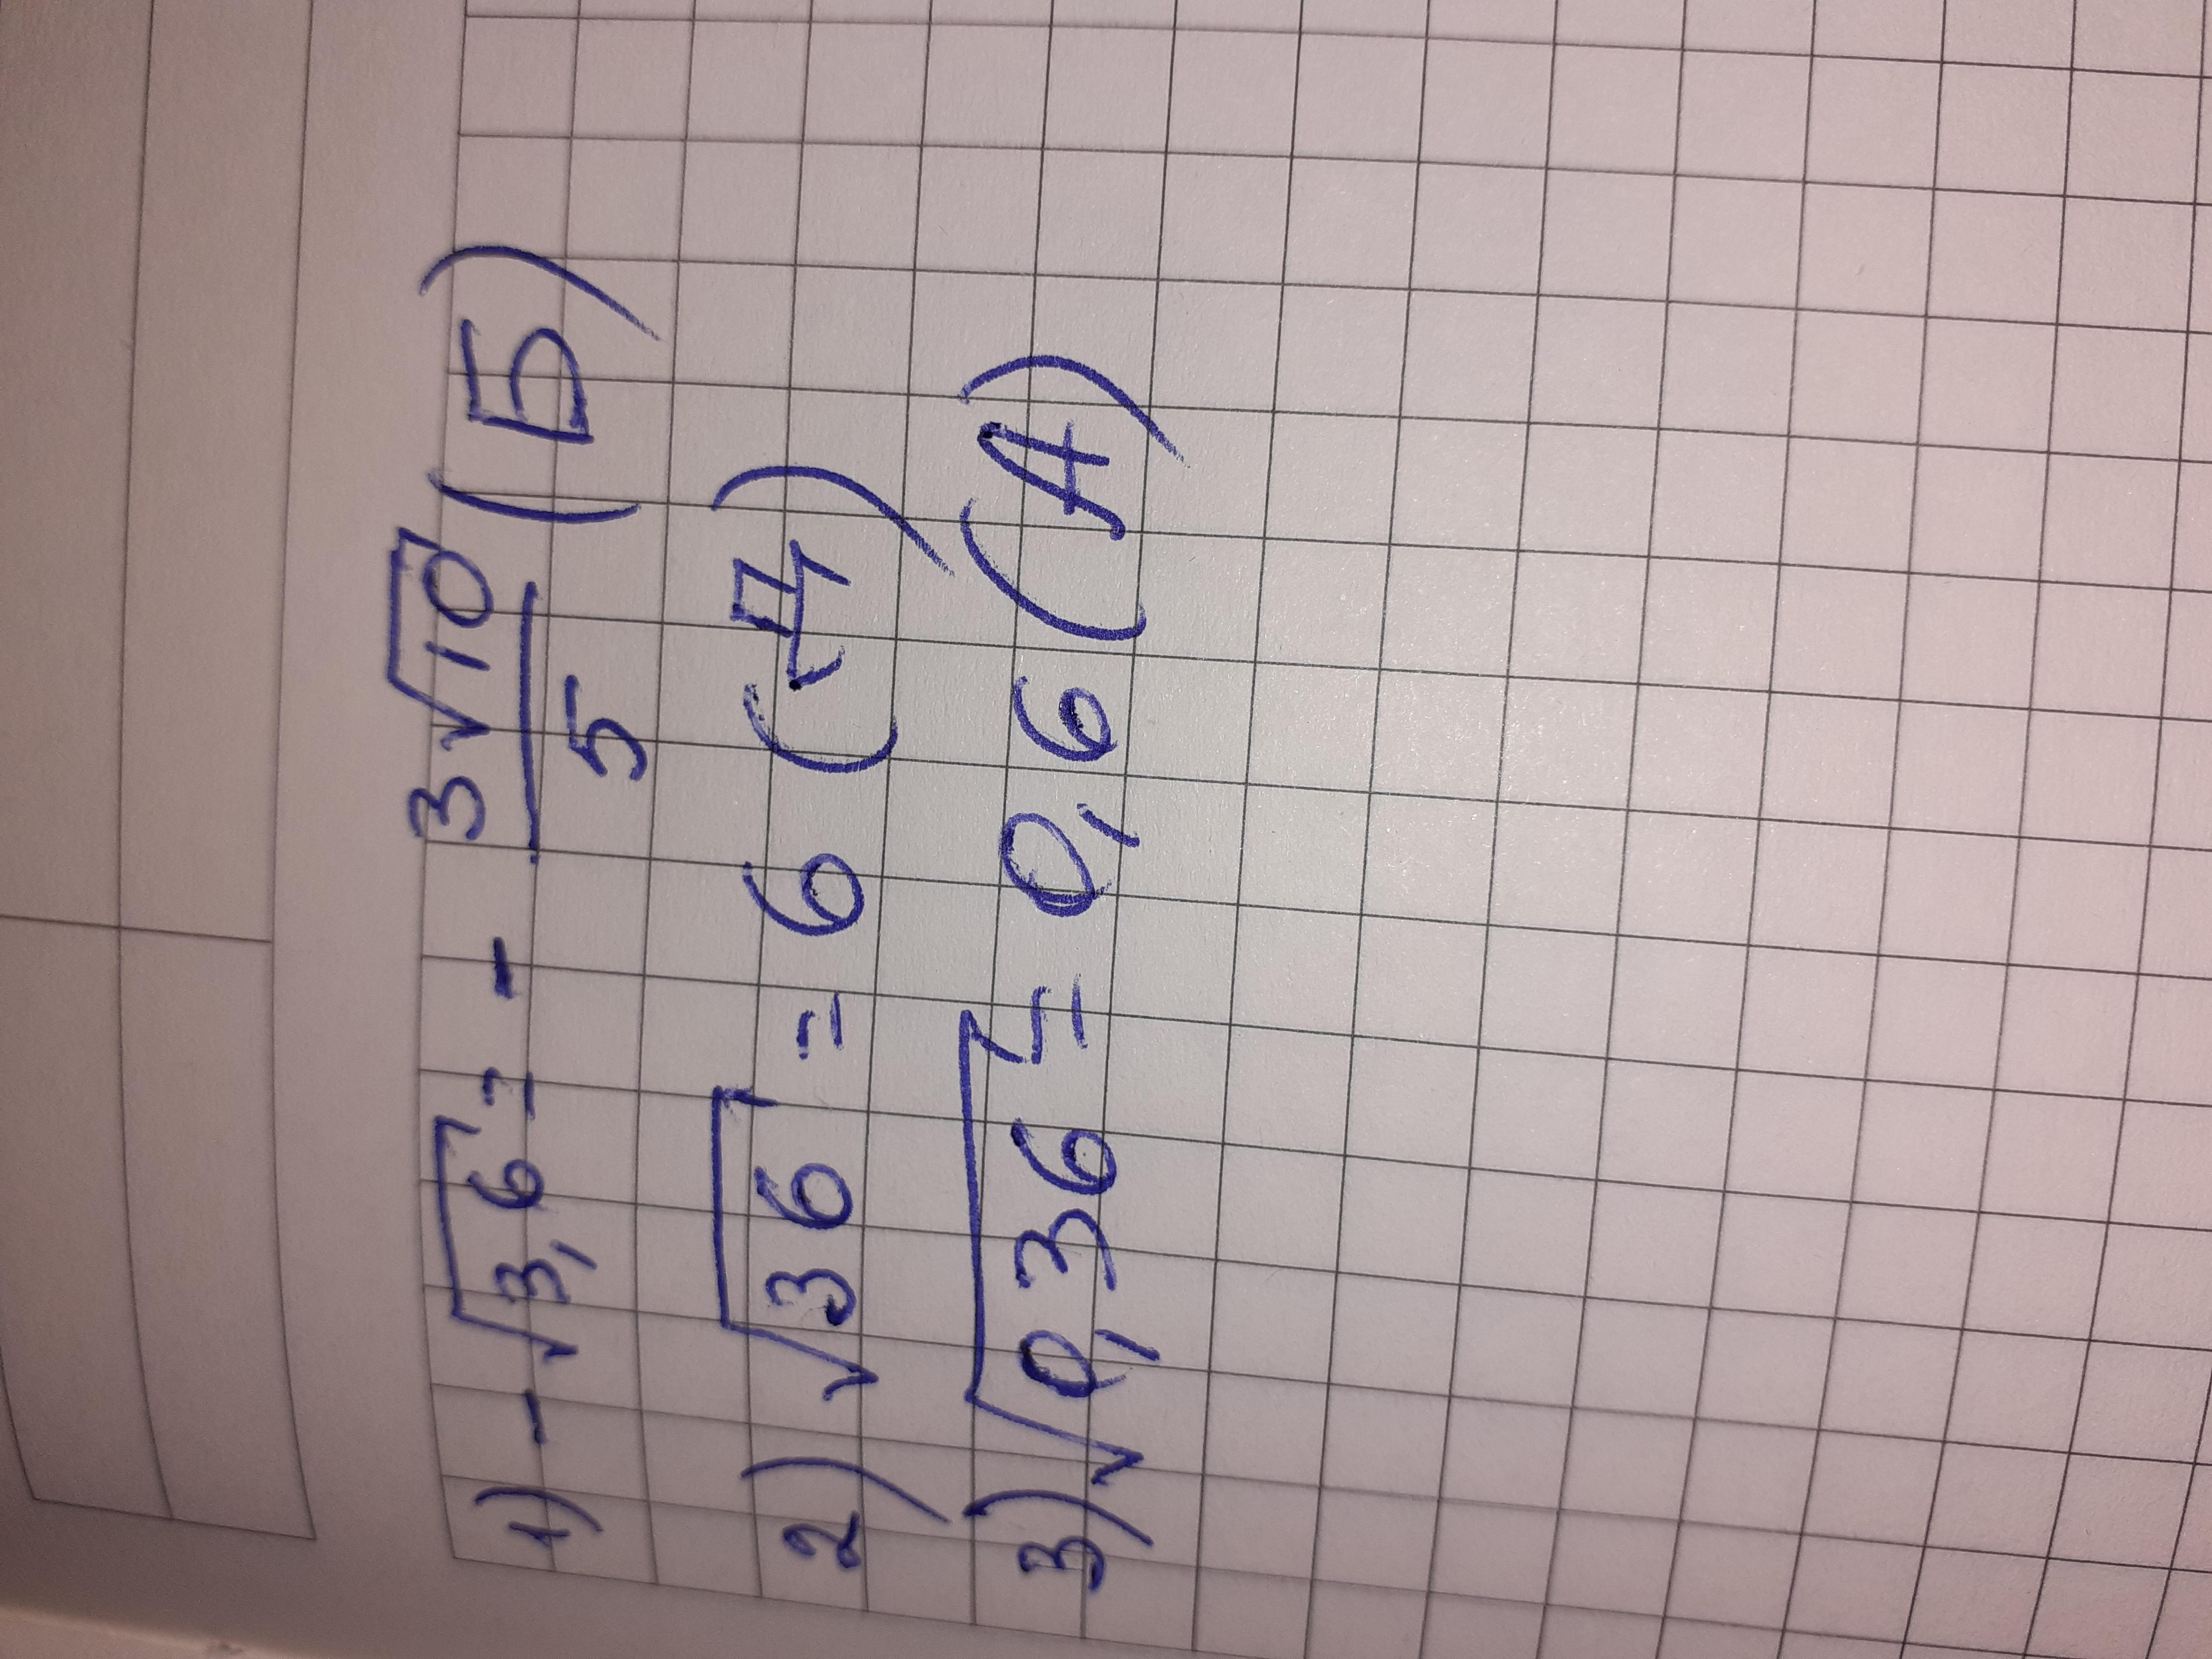 1) -√3,6 = - 3√10/5 (Б)
2) √36 = 6 (Д)
3) √0,36 = 0,6 (А)